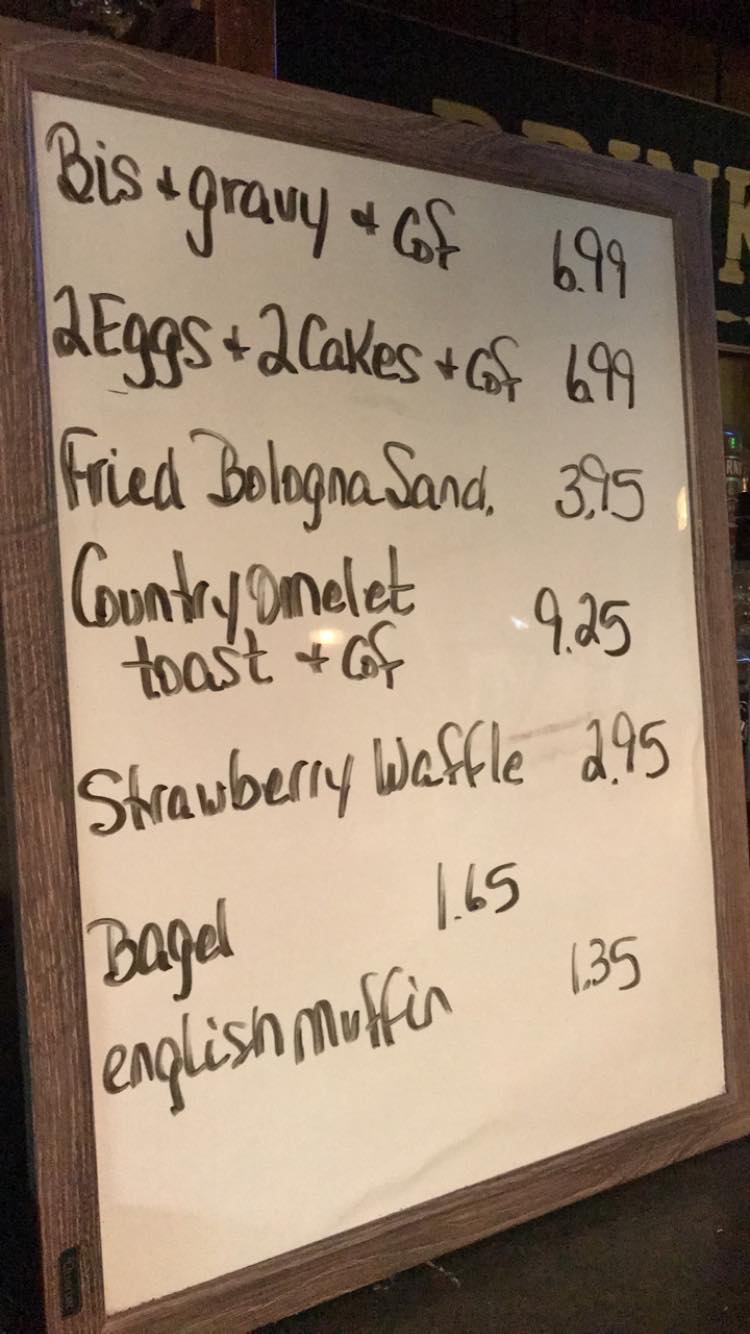 DRINK
Bis + gravy + Cof 6.99
2 Eggs + 2 Cakes + Cof 6.99
Fried Bologna Sand. 3.95
Country Omelet
toast + Cof 9.25
Strawberry Waffle 2.95
Bagel 1.65
english muffin 1.35